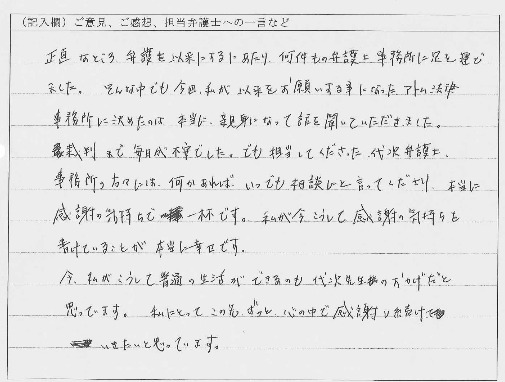 (記入欄)ご意見、ご感想、担当弁護士への一言など
正直なところ弁護を以来にするにあたり、何件もの弁護士事務所に足を運び
ました。そんな中でも今回、私が以来をお願いする事になったアトム法律
事務所に決めたのは本当に、親身になって話を聞いていただきました。
裁判まで毎日が不安でした。でも担当してくださった代次弁護士、
事務所の方々には、何かあればいつでも相談してと言ってくださり、本当に
感謝の気持ちで一杯です。私が今こうして感謝の気持ちを
書けていることが本当に幸せです。
今、私がこうして普通の生活ができるのも代次先生様のおかげだと
思っています。私にとってこの先、ずっと、心の中で感謝し続けて
いきたいと思っています。